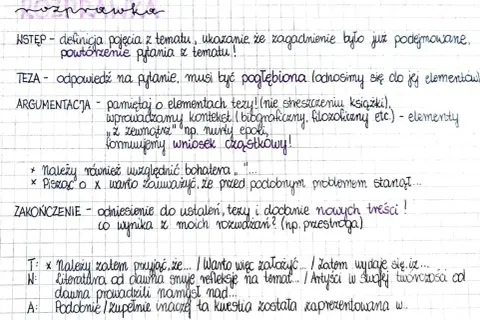 rozprawka
WSTĘP - definicja pojęcia z tematu, ukazanie, że zagadnienie było już podejmowane,
powtórzenie pytania z tematu!
TEZA - odpowiedź na pytanie, musi być pogłębiona (odnosimy się do jej elementów)
ARGUMENTACJA - pamiętaj o elementach tezy! (nie streszczeniu książki),
wprowadzamy kontekst (biograficzny, filozoficzny etc.) - elementy
"z zewnątrz" np. nurty epoki,
formujemy wniosek cząstkowy!
* Należy również uwzględnić bohatera „ "...
* Pisząc o x warto zauważyć, że przed podobnym problemem stanął...
ZAKOŃCZENIE - odniesienie do ustaleń, tezy i dodanie nowych treści!
co wynika z moich rozważań? (np. przestroga)
T: * Należy zatem przyjąć, że... / Warto więc założyć... / Zatem wydaje się, iż...
W: Literatura od dawna snuje refleksje na temat... / Artyści w swojej twórczości od
dawna prowadzili namysł nad...
A: Podobnie / zupełnie inaczej ta kwestia została zaprezentowana w...